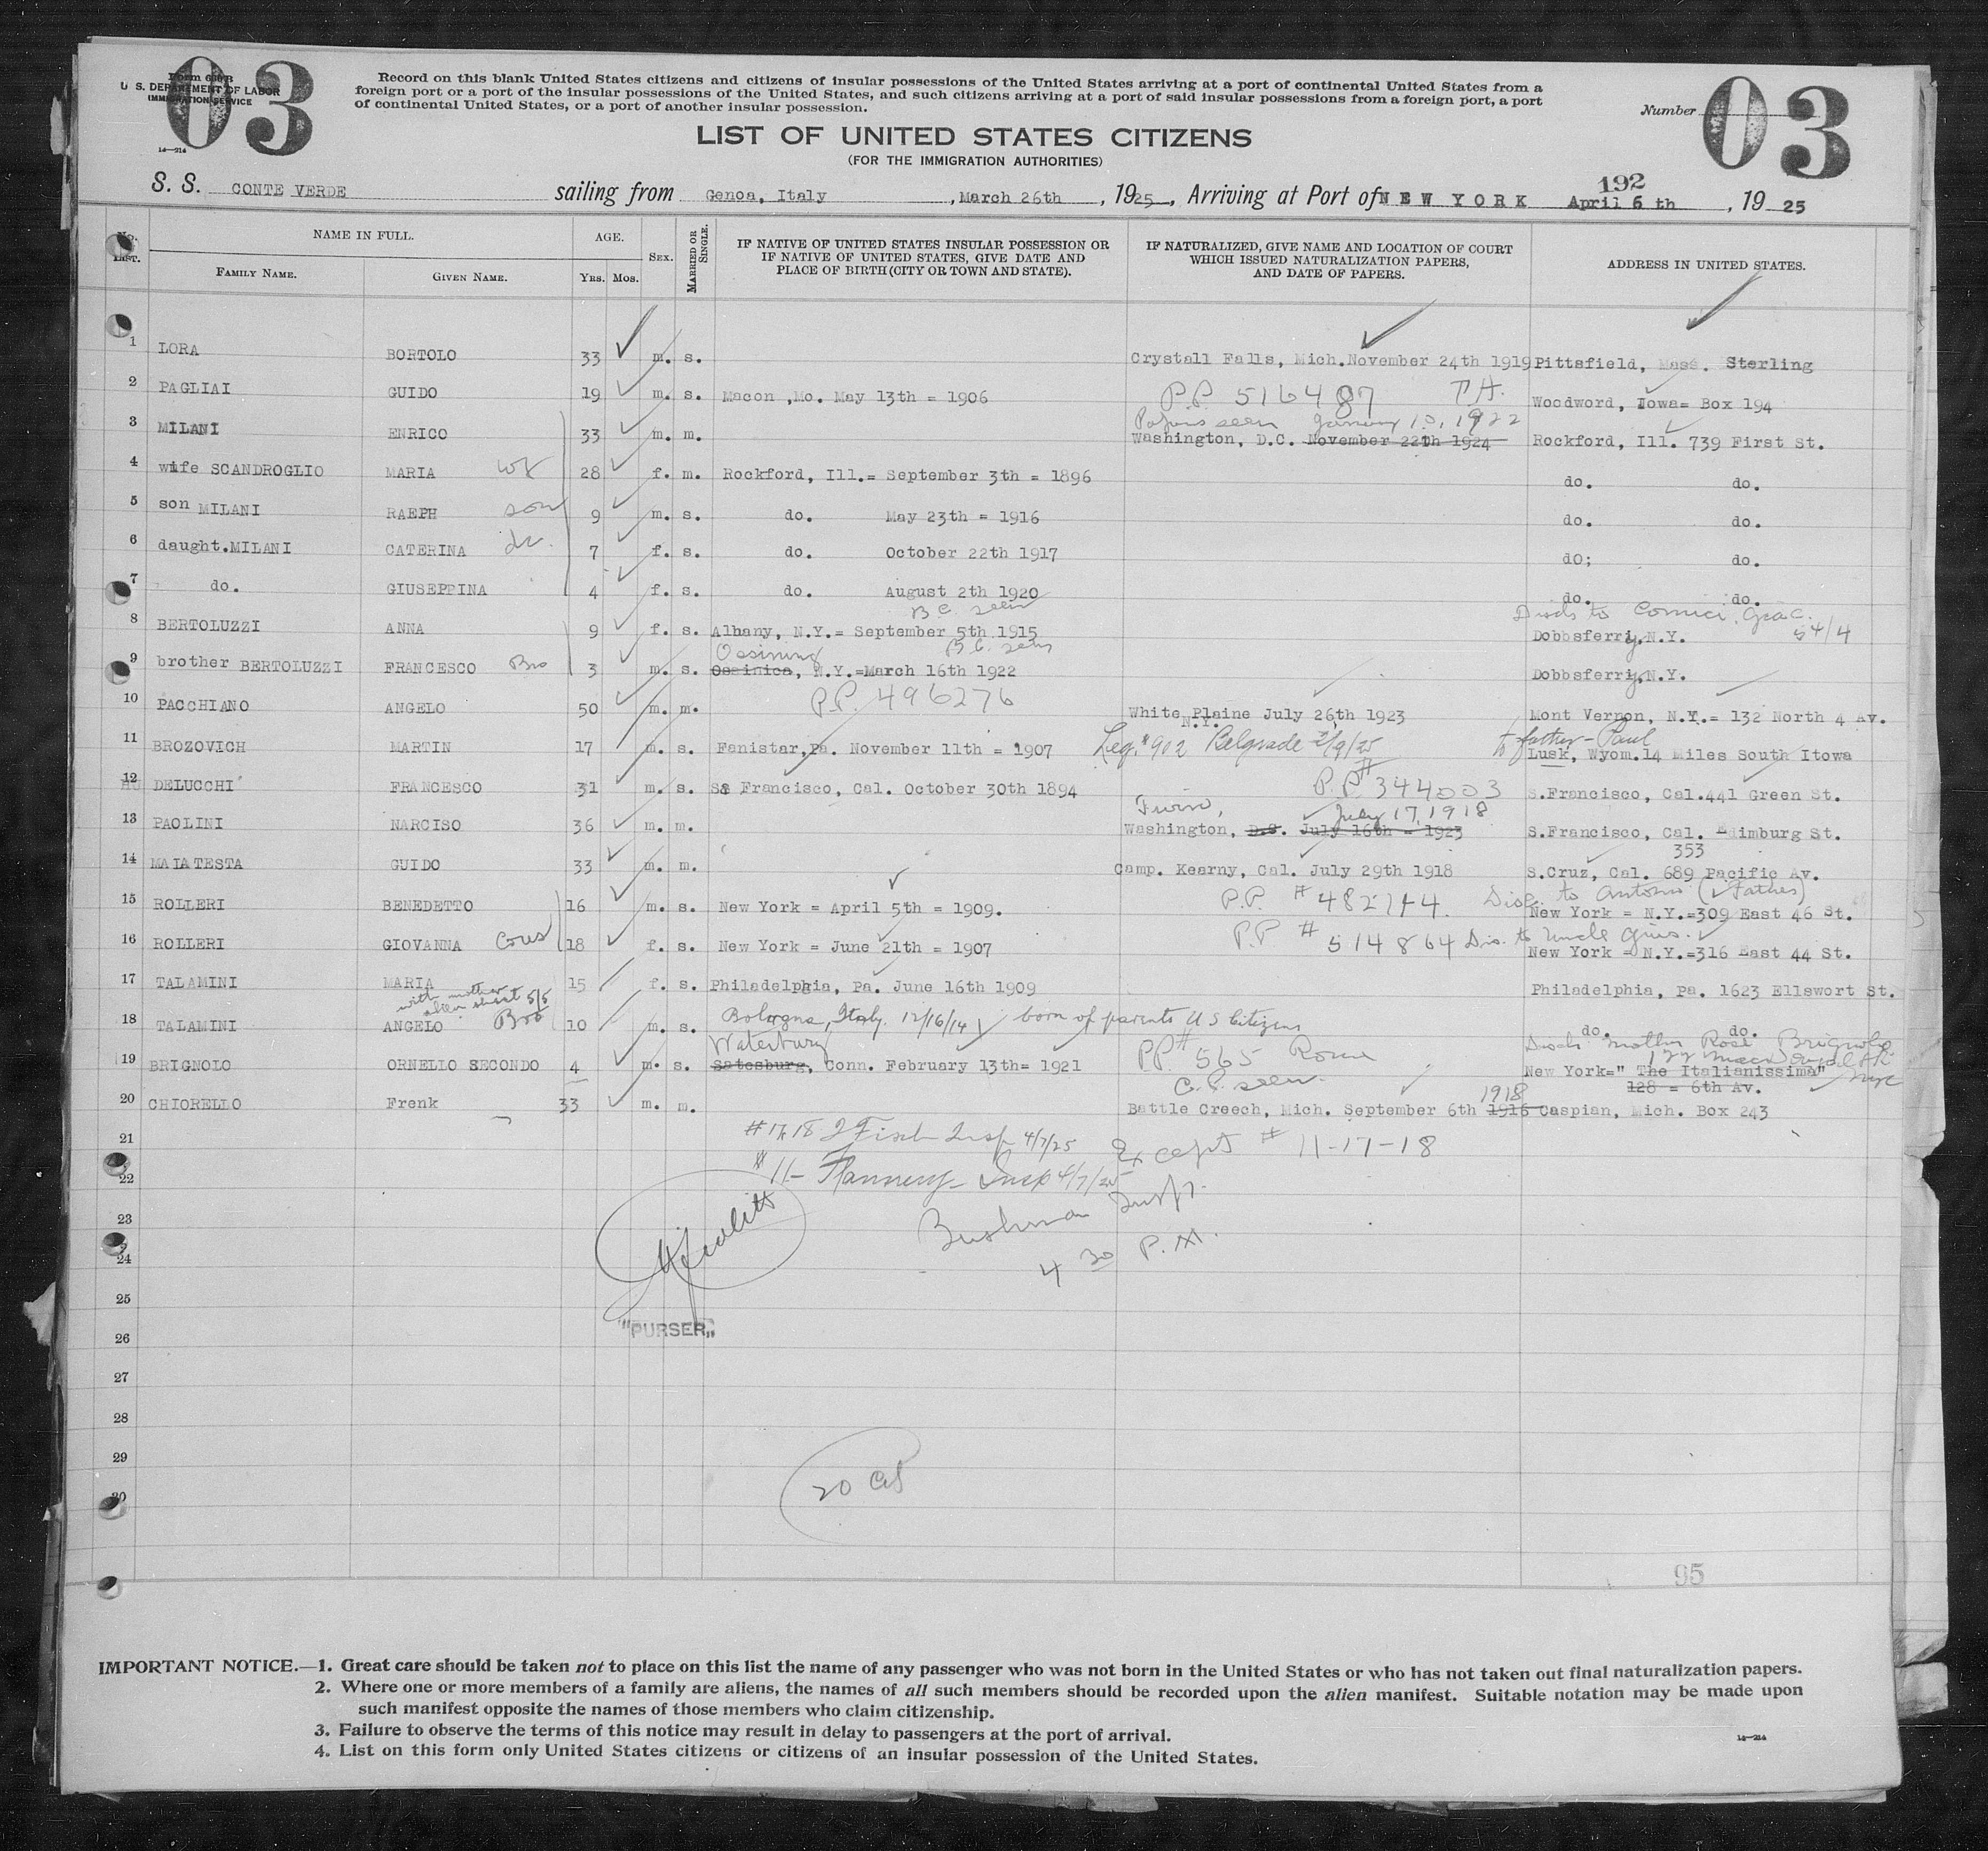 03
Form 630 B
U. S. DEPARTMENT OF LABOR
IMMIGRATION SERVICE
14—214
Record on this blank United States citizens and citizens of insular possessions of the United States arriving at a port of continental United States from a
foreign port or a port of the insular possessions of the United States, and such citizens arriving at a port of said insular possessions from a foreign port, a port
of continental United States, or a port of another insular possession.
Number
03
LIST OF UNITED STATES CITIZENS
(FOR THE IMMIGRATION AUTHORITIES)
S. S. CONTE VERDE sailing from Genoa, Italy , March 26th , 1925 , Arriving at Port of NEW YORK 192 April 6 th , 19 25
No. List. NAME IN FULL. AGE. SEX. MARRIED OR SINGLE. IF NATIVE OF UNITED STATES INSULAR POSSESSION OR IF NATIVE OF UNITED STATES, GIVE DATE AND PLACE OF BIRTH (CITY OR TOWN AND STATE). IF NATURALIZED, GIVE NAME AND LOCATION OF COURT WHICH ISSUED NATURALIZATION PAPERS, AND DATE OF PAPERS. ADDRESS IN UNITED STATES.
FAMILY NAME. GIVEN NAME. YRS. MOS.
1 LORA BORTOLO 33 m. s. Crystall Falls, Mich. November 24th 1919 Pittsfield, Mass. Sterling
2 PAGLIAI GUIDO 19 m. s. Macon ,Mo. May 13th = 1906 P.P. 516487 T.H. Woodword, Iowa= Box 194
Papers seen January 10, 1922
3 MILANI ENRICO 33 m. m. Washington, D.C. November 22th 1924 Rockford, Ill. 739 First St.
4 wife SCANDROGLIO MARIA wf 28 f. m. Rockford, Ill.= September 3th = 1896 do. do.
5 son MILANI RAEPH son 9 m. s. do. May 23th = 1916 do. do.
6 daught.MILANI CATERINA da. 7 f. s. do. October 22th 1917 dO; do.
7 do. GIUSEPPINA 4 f. s. do. August 2th 1920 do. do.
B C. seen Disch to
8 BERTOLUZZI ANNA 9 f. s. Albany, N.Y.= September 5th 1915 Dobbsferry, N.Y.
Ossining B.C. seen
9 brother BERTOLUZZI FRANCESCO Bro 3 m. s. Ossinica, N.Y.=March 16th 1922 Dobbsferry, N.Y.
P.P. 496276
10 PACCHIANO ANGELO 50 m. m. White Plaine July 26th 1923 Mont Vernon, N.Y.= 132 North 4 Av.
N.Y.
to father - Paul
11 BROZOVICH MARTIN 17 m. s. Fanistar, Pa. November 11th = 1907 Leg. #902 Belgrade 2/9/25 Lusk, Wyom.14 Miles South Itowa
12 DELUCCHI FRANCESCO 31 m. s. Sa Francisco, Cal. October 30th 1894 P.P. # 344003 S.Francisco, Cal.441 Green St.
Turin, July 17, 1918
13 PAOLINI NARCISO 36 m. m. Washington, D.C. July 16th = 1923 S.Francisco, Cal. Edimburg St.
353
14 MALATESTA GUIDO 33 m. m. Camp. Kearny, Cal. July 29th 1918 S.Cruz, Cal. 689 Pacific Av.
Disc. to Antonio (Father)
15 ROLLERI BENEDETTO 16 m. s. New York = April 5th = 1909. P.P. # New York = N.Y.=309 East 46 St.
P.P # 514864 Dis. to Uncle
16 ROLLERI GIOVANNA Cous 18 f. s. New York = June 21th = 1907 New York = N.Y.=316 East 44 St.
17 TALAMINI MARIA 15 f. s. Philadelphia, Pa. June 16th 1909 Philadelphia, Pa. 1623 Ellswort St.
with mother
alien sheet 5/5
18 TALAMINI ANGELO Bro 10 m. s. Bologna, Italy. 12/16/14 born of parents U S Citizens do. do.
Waterbury Disch mother Rose Brignolo
19 BRIGNOLO ORNELLO SECONDO 4 m. s. Satesburg, Conn. February 13th= 1921 PP# 565 Rome New York=" The Italianissima"
C.P. seen. 128 = 6th Av. NYC
1918
20 CHIORELLO Frenk 33 m. m. Battle Creech, Mich. September 6th 1916 Caspian, Mich. Box 243
21 #17,18 Insp 4/7/25 Except # 11-17-18
22 #11- Flannery - Insp 4/7/25
Bushman Insp.
23
24 4 30 P.M.
25
"PURSER"
26
27
28
29
20
30
95
IMPORTANT NOTICE.—1. Great care should be taken not to place on this list the name of any passenger who was not born in the United States or who has not taken out final naturalization papers.
2. Where one or more members of a family are aliens, the names of all such members should be recorded upon the alien manifest. Suitable notation may be made upon
such manifest opposite the names of those members who claim citizenship.
3. Failure to observe the terms of this notice may result in delay to passengers at the port of arrival.
4. List on this form only United States citizens or citizens of an insular possession of the United States.
14—214